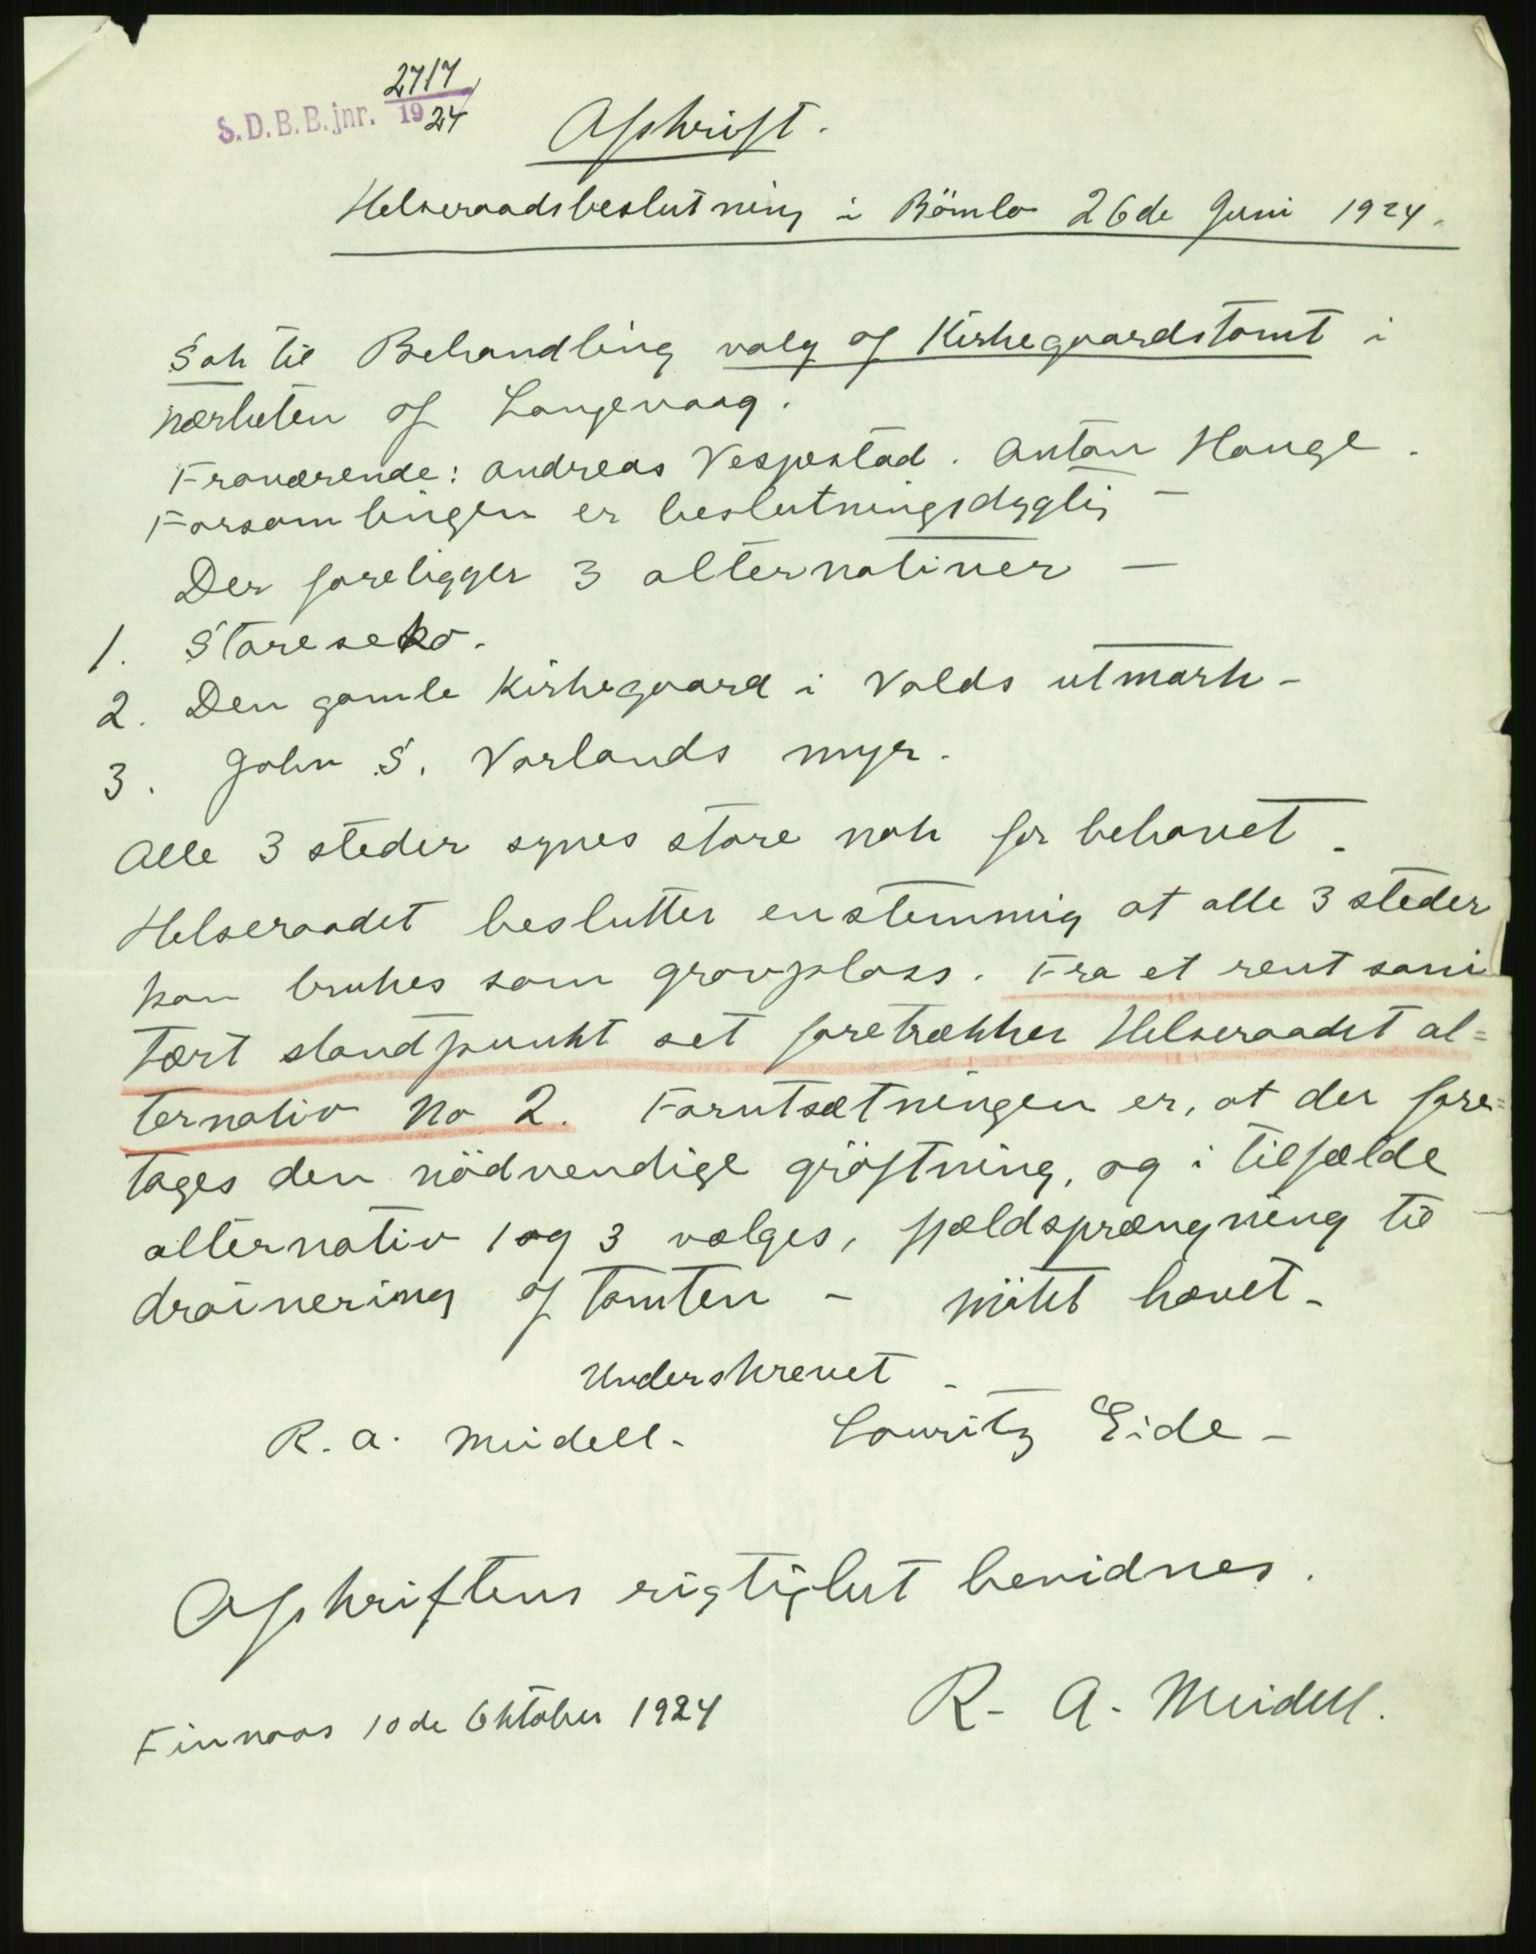 S.D.B.B. jnr. 2717/1924
Afskrift.
Helseraadsbeslutning i Bömlo 26de Juni 1924.
Sak til Behandling valg af Kirkegaardstomt i
nærheten af Langevaag.
Fraværende: Andreas Vespestad. Anton Hauge.
Forsamlingen er beslutningsdygtig –
Der foreligger 3 alternativer –
1. Storeseko.
2. Den gamle Kirkegaard i Valds utmark –
3. John S. Vorlands myr.
Alle 3 steder synes store nok for behovet.
Helseraadet beslutter enstemmig at alle 3 steder
kan brukes som gravplass. Fra et rent sani
tært standpunkt set foretrækker Helseraadet al=
ternativ No 2. Forutsætningen er, at der fore=
tages den nödvendige gröftning, og i tilfælde
alternativ 1 og 3 vælges, fjældsprængning til
drainering af tomten – mötet hævet –
Underskrevet –
R. A. Meidell – Lauritz Eide –
Afskriftens rigtighet bevidnes.
Finnaas 10de Oktober 1924 R. A. Meidell.